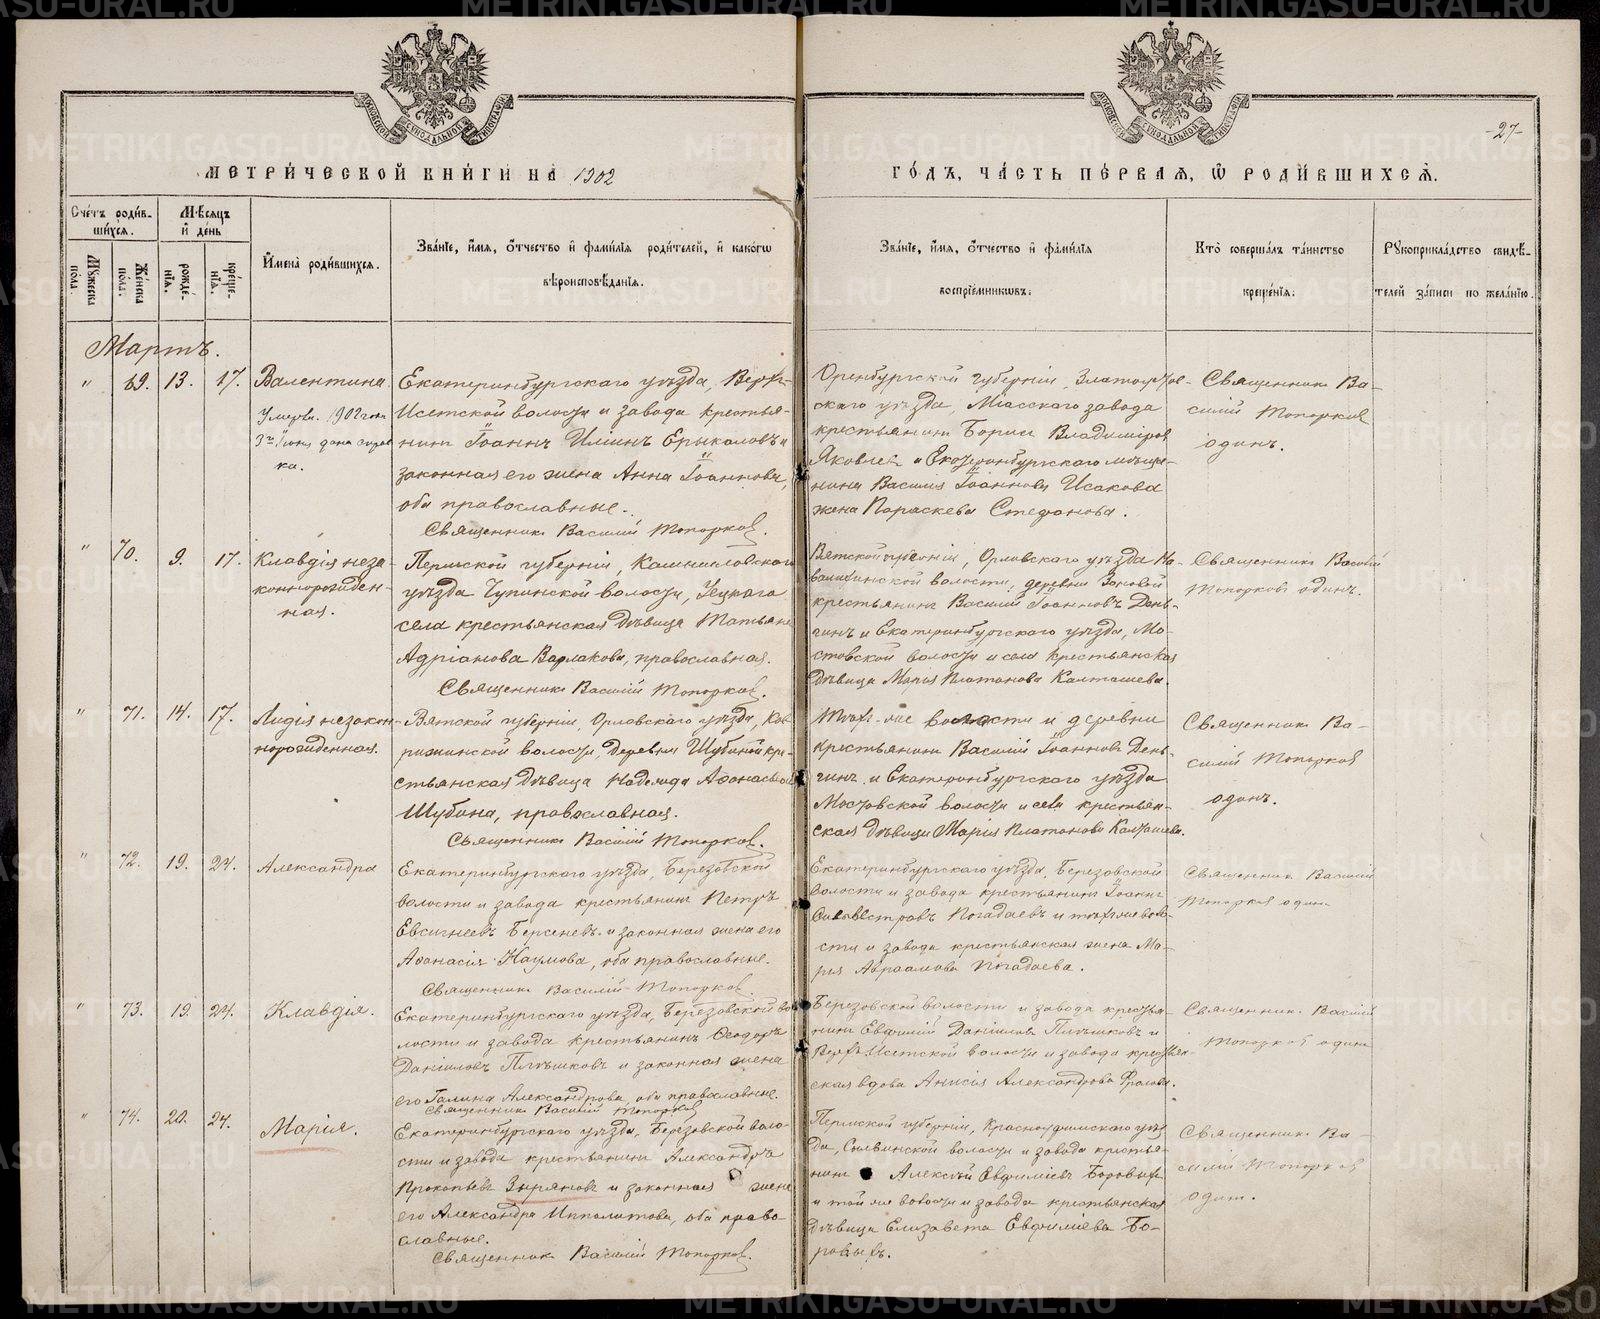 METRIKI.GASO-URAL.RU
-27-
МЕТРИ́ЧЕСКОЙ КНИ́ГИ НА 1902
ГО́ДЪ, ЧА́СТЬ ПЕ́РВАЯ, Ѡ РОДИ́ВШИХСѦ.
Сче́тъ роди́в-
ши́хсѧ.
Мѣсяцъ
и҆ де́нь
Мꙋжеска
пола.
Же́нска
по́ла.
рожде́-
нїѧ.
креще́-
нїѧ.
И҆мена̀ роди́вшихсѧ.
Зва́нїе, и҆́мѧ, ѻ҆́тчество и҆ фами́лїѧ роди́телей, и҆ како́гѡ
вѣроисповѣ́данїѧ.
Зва́нїе, и҆́мѧ, ѻ҆́тчество и҆ фами́лїѧ
воспрїе́мникѡвъ.
Кто̀ соверша́лъ та́инство
креще́нїѧ.
Рꙋкоприкла́дство свидѣ́-
телей за́писи по жела́нїю.
Мартъ.
" 69. 13. 17. Валентина
Умерла 1902 года
Екатеринбургскаго уѣзда, Верх-
Исетской волости и завода крестья-
нинъ Іоаннъ Илiинъ Ерыкаловъ и
законная его жена Анна Іоаннова,
оба православные.
Священникъ Василій Топорковъ.
Оренбургской губерніи, Златоустов-
скаго уѣзда, Міасскаго завода
крестьянинъ Борисъ Владиміровъ
Яковлевъ и Екатеринбургскаго мѣща-
нина Василія Іоаннова Исакова
жена Параскева Стефанова.
Священникъ Ва-
силій Топорковъ
одинъ.
" 70. 9. 17. Клавдія неза-
коннорожден-
ная.
Пермской губерніи, Камышловскаго
уѣзда Чупинской волости,
села крестьянская дѣвица Татьяна
Адріанова Варлакова, православная.
Священникъ Василій Топорковъ.
Вятской губерніи, Орловскаго уѣзда
волости, деревни
крестьянинъ Василій Іоанновъ День-
гинъ и Екатеринбургскаго уѣзда, Мо-
стовской волости и села крестьянская
дѣвица Марія Платонова Калташева.
Священникъ Василій
Топорковъ одинъ.
" 71. 14. 17. Лидія незакон-
норожденная.
Вятской губерніи, Орловскаго уѣзда,
волости, деревни Шубиной кре-
стьянская дѣвица Надежда Аѳанасьева
Шубина, православная.
Священникъ Василій Топорковъ.
Той-же волости и деревни
крестьянинъ Василій Іоанновъ День-
гинъ и Екатеринбургскаго уѣзда
Мостовской волости и села крестьян-
ская дѣвица Марія Платонова Калташева.
Священникъ Ва-
силій Топорковъ
одинъ.
" 72. 19. 24. Александра
Екатеринбургскаго уѣзда, Березовской
волости и завода крестьянинъ Петръ
Евсигнеевъ Берсеневъ и законная жена его
Аѳанасія Наумова, оба православные.
Священникъ Василій Топорковъ.
Екатеринбургскаго уѣзда, Березовской
волости и завода крестьянинъ Іоаннъ
Силвестровъ Погадаевъ и той-же воло-
сти и завода крестьянская жена Ма-
рія Авраамова Погадаева.
Священникъ Василій
Топорковъ одинъ
" 73. 19. 24. Клавдія.
Екатеринбургскаго уѣзда, Березовской во-
лости и завода крестьянинъ Ѳеодоръ
Даніиловъ Плѣшковъ и законная жена
его Галина Александрова, оба православные.
Священникъ Василій Топорковъ
Березовской волости и завода крестья-
нинъ Евфимій Даніиловъ Плѣшковъ и
Верхъ-Исетской волости и завода крестьян-
ская вдова Анисія Александрова Фролова.
Священникъ Василій
Топорковъ одинъ
" 74. 20. 24. Марія.
Екатеринбургскаго уѣзда, Березовской воло-
сти и завода крестьянинъ Александръ
Прокопьевъ Зыряновъ и законная жена
его Александра Ипполитова, оба право-
славные.
Священникъ Василій Топорковъ.
Пермской губерніи, Красноуфимскаго уѣз-
да, Сылвинской волости и завода крестья-
нинъ Алексѣй Евфиміевъ Боровыхъ
и той же волости и завода крестьянская
дѣвица Елизавета Евфиміева Бо-
ровыхъ.
Священникъ Ва-
силій Топорковъ
одинъ.